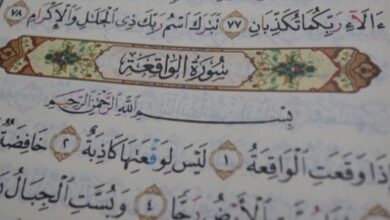 ءَالَآءِ رَبِّكُمَا تُكَذِّبَانِ ٧٧ تَبَٰرَكَ ٱسْمُ رَبِّكَ ذِى ٱلْجَلَٰلِ وَٱلْإِكْرَامِ ٧٨
سُورَةُ الْوَاقِعَةِ
بِسْمِ اللَّهِ الرَّحْمَٰنِ الرَّحِيمِ
ذَا وَقَعَتِ ٱلْوَاقِعَةُ ١ لَيْسَ لِوَقْعَتِهَا كَاذِبَةٌ ٢ خَافِضَةٌ
ٱلْأَرْضُ رَجًّا ٤ وَبُسَّتِ ٱلْجِبَالُ